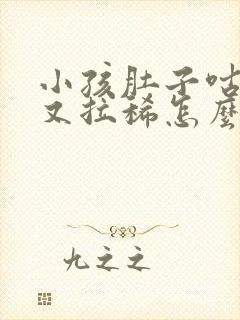 小孩肚子咕
又拉稀怎麽
九之之